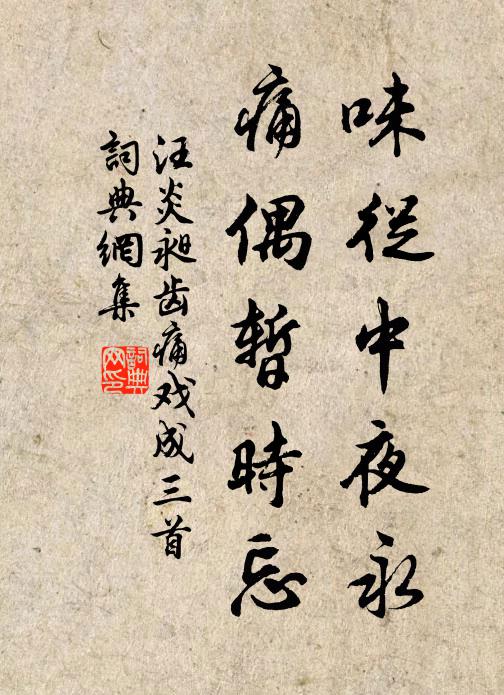 味從中夜永
痛偶暫時忘
汪炎昶齿痛戏成三首
詞典網集
詞典网印